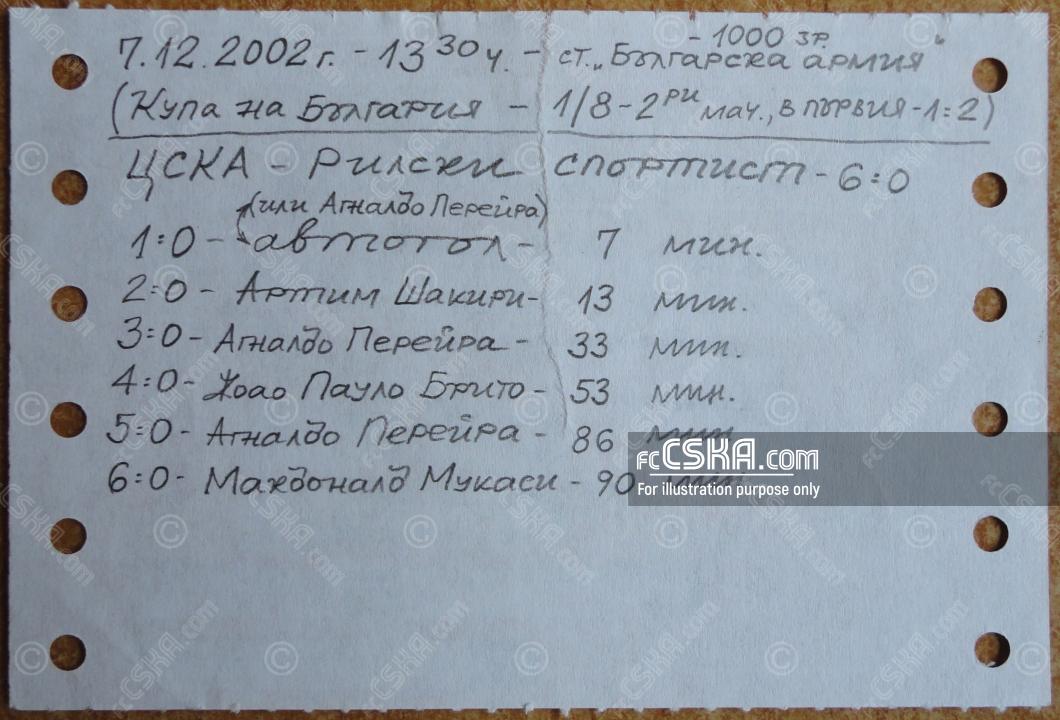 - 1000 зр.
7.12.2002 г. - 13 30 ч. - ст. „Българска армия“
(Купа на България - 1/8 - 2ри мач., в първия - 1:2)
ЦСКА - Рилски спортист - 6:0
(или Агналдо Перейра)
1:0 - автогол - 7 мин.
2:0 - Артим Шакири - 13 мин.
3:0 - Агналдо Перейра - 33 мин.
4:0 - Жоао Пауло Брито - 53 мин.
5:0 - Агналдо Перейра - 86 мин.
6:0 - Макдоналд Мукаси - 90 мин.
fcCSKA.com
For illustration purpose only